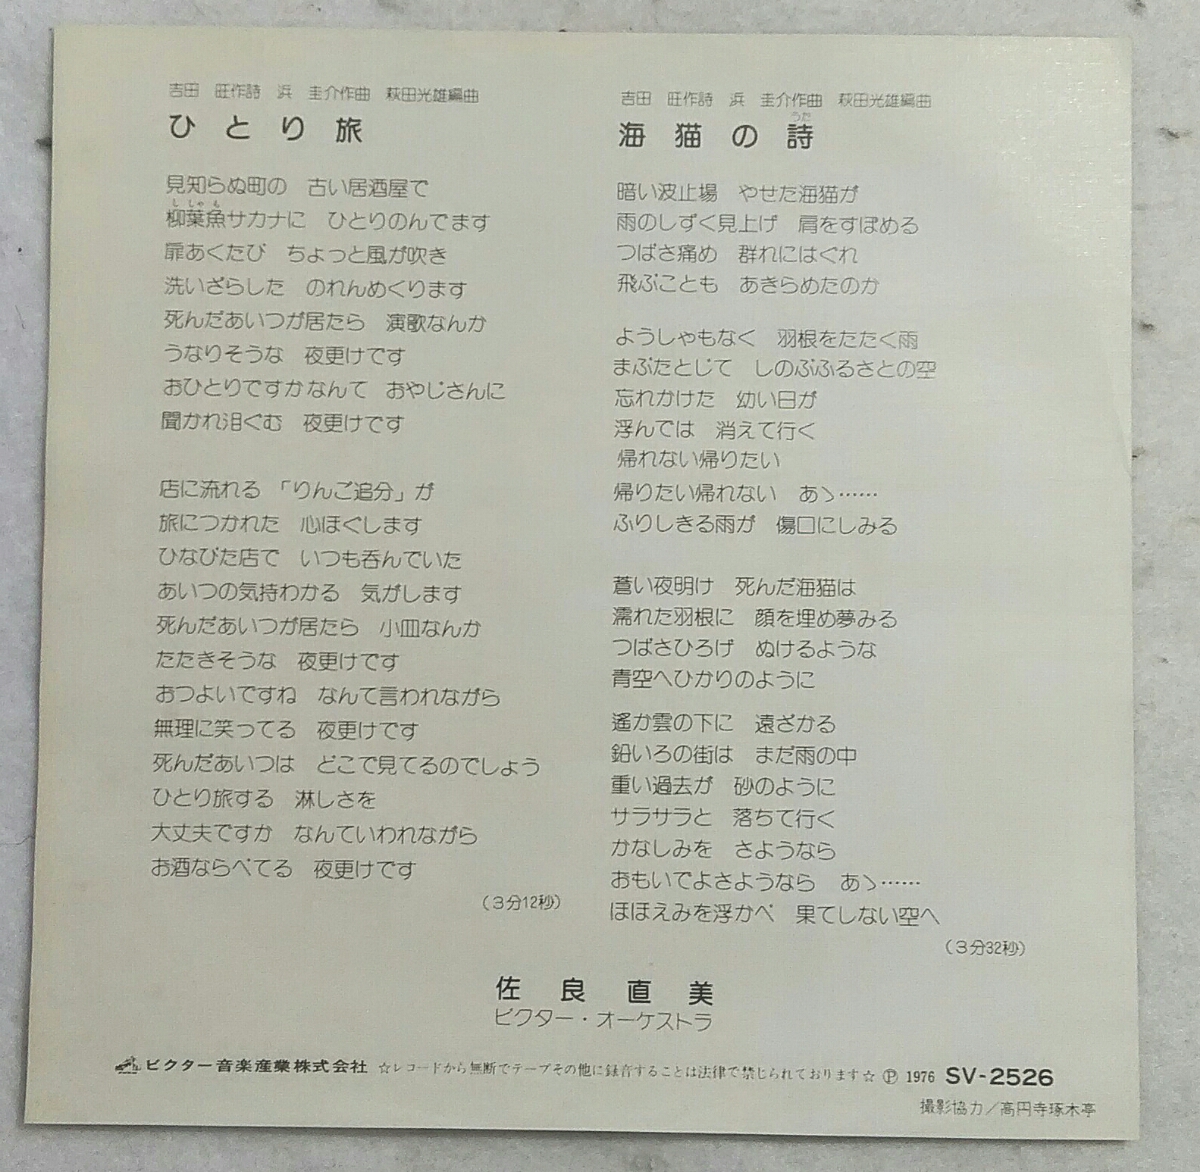 吉田　旺作詩　浜　圭介作曲　萩田光雄編曲
ひとり旅
見知らぬ町の　古い居酒屋で
ししゃも
柳葉魚サカナに　ひとりのんでます
扉あくたび　ちょっと風が吹き
洗いざらした　のれんめくります
死んだあいつが居たら　演歌なんか
うなりそうな　夜更けです
おひとりですかなんて　おやじさんに
聞かれ泪ぐむ　夜更けです
店に流れる　「りんご追分」が
旅につかれた　心ほぐします
ひなびた店で　いつも呑んでいた
あいつの気持わかる　気がします
死んだあいつが居たら　小皿なんか
たたきそうな　夜更けです
おつよいですね　なんて言われながら
無理に笑ってる　夜更けです
死んだあいつは　どこで見てるのでしょう
ひとり旅する　淋しさを
大丈夫ですか　なんていわれながら
お酒ならべてる　夜更けです
（3分12秒）
吉田　旺作詩　浜　圭介作曲　萩田光雄編曲
うた
海猫の詩
暗い波止場　やせた海猫が
雨のしずく見上げ　肩をすぼめる
つばさ痛め　群れにはぐれ
飛ぶことも　あきらめたのか
ようしゃもなく　羽根をたたく雨
まぶたとじて　しのぶふるさとの空
忘れかけた　幼い日が
浮んでは　消えて行く
帰れない帰りたい
帰りたい帰れない　あゝ……
ふりしきる雨が　傷口にしみる
蒼い夜明け　死んだ海猫は
濡れた羽根に　顔を埋め夢みる
つばさひろげ　ぬけるような
青空へひかりのように
遙か雲の下に　遠ざかる
鉛いろの街は　まだ雨の中
重い過去が　砂のように
サラサラと　落ちて行く
かなしみを　さようなら
おもいでよさようなら　あゝ……
ほほえみを浮かべ　果てしない空へ
（3分32秒）
佐良直美
ビクター・オーケストラ
ビクター音楽産業株式会社　☆レコードから無断でテープその他に録音することは法律で禁じられております☆　Ⓟ 1976　SV-2526
撮影協力／高円寺琢木亭